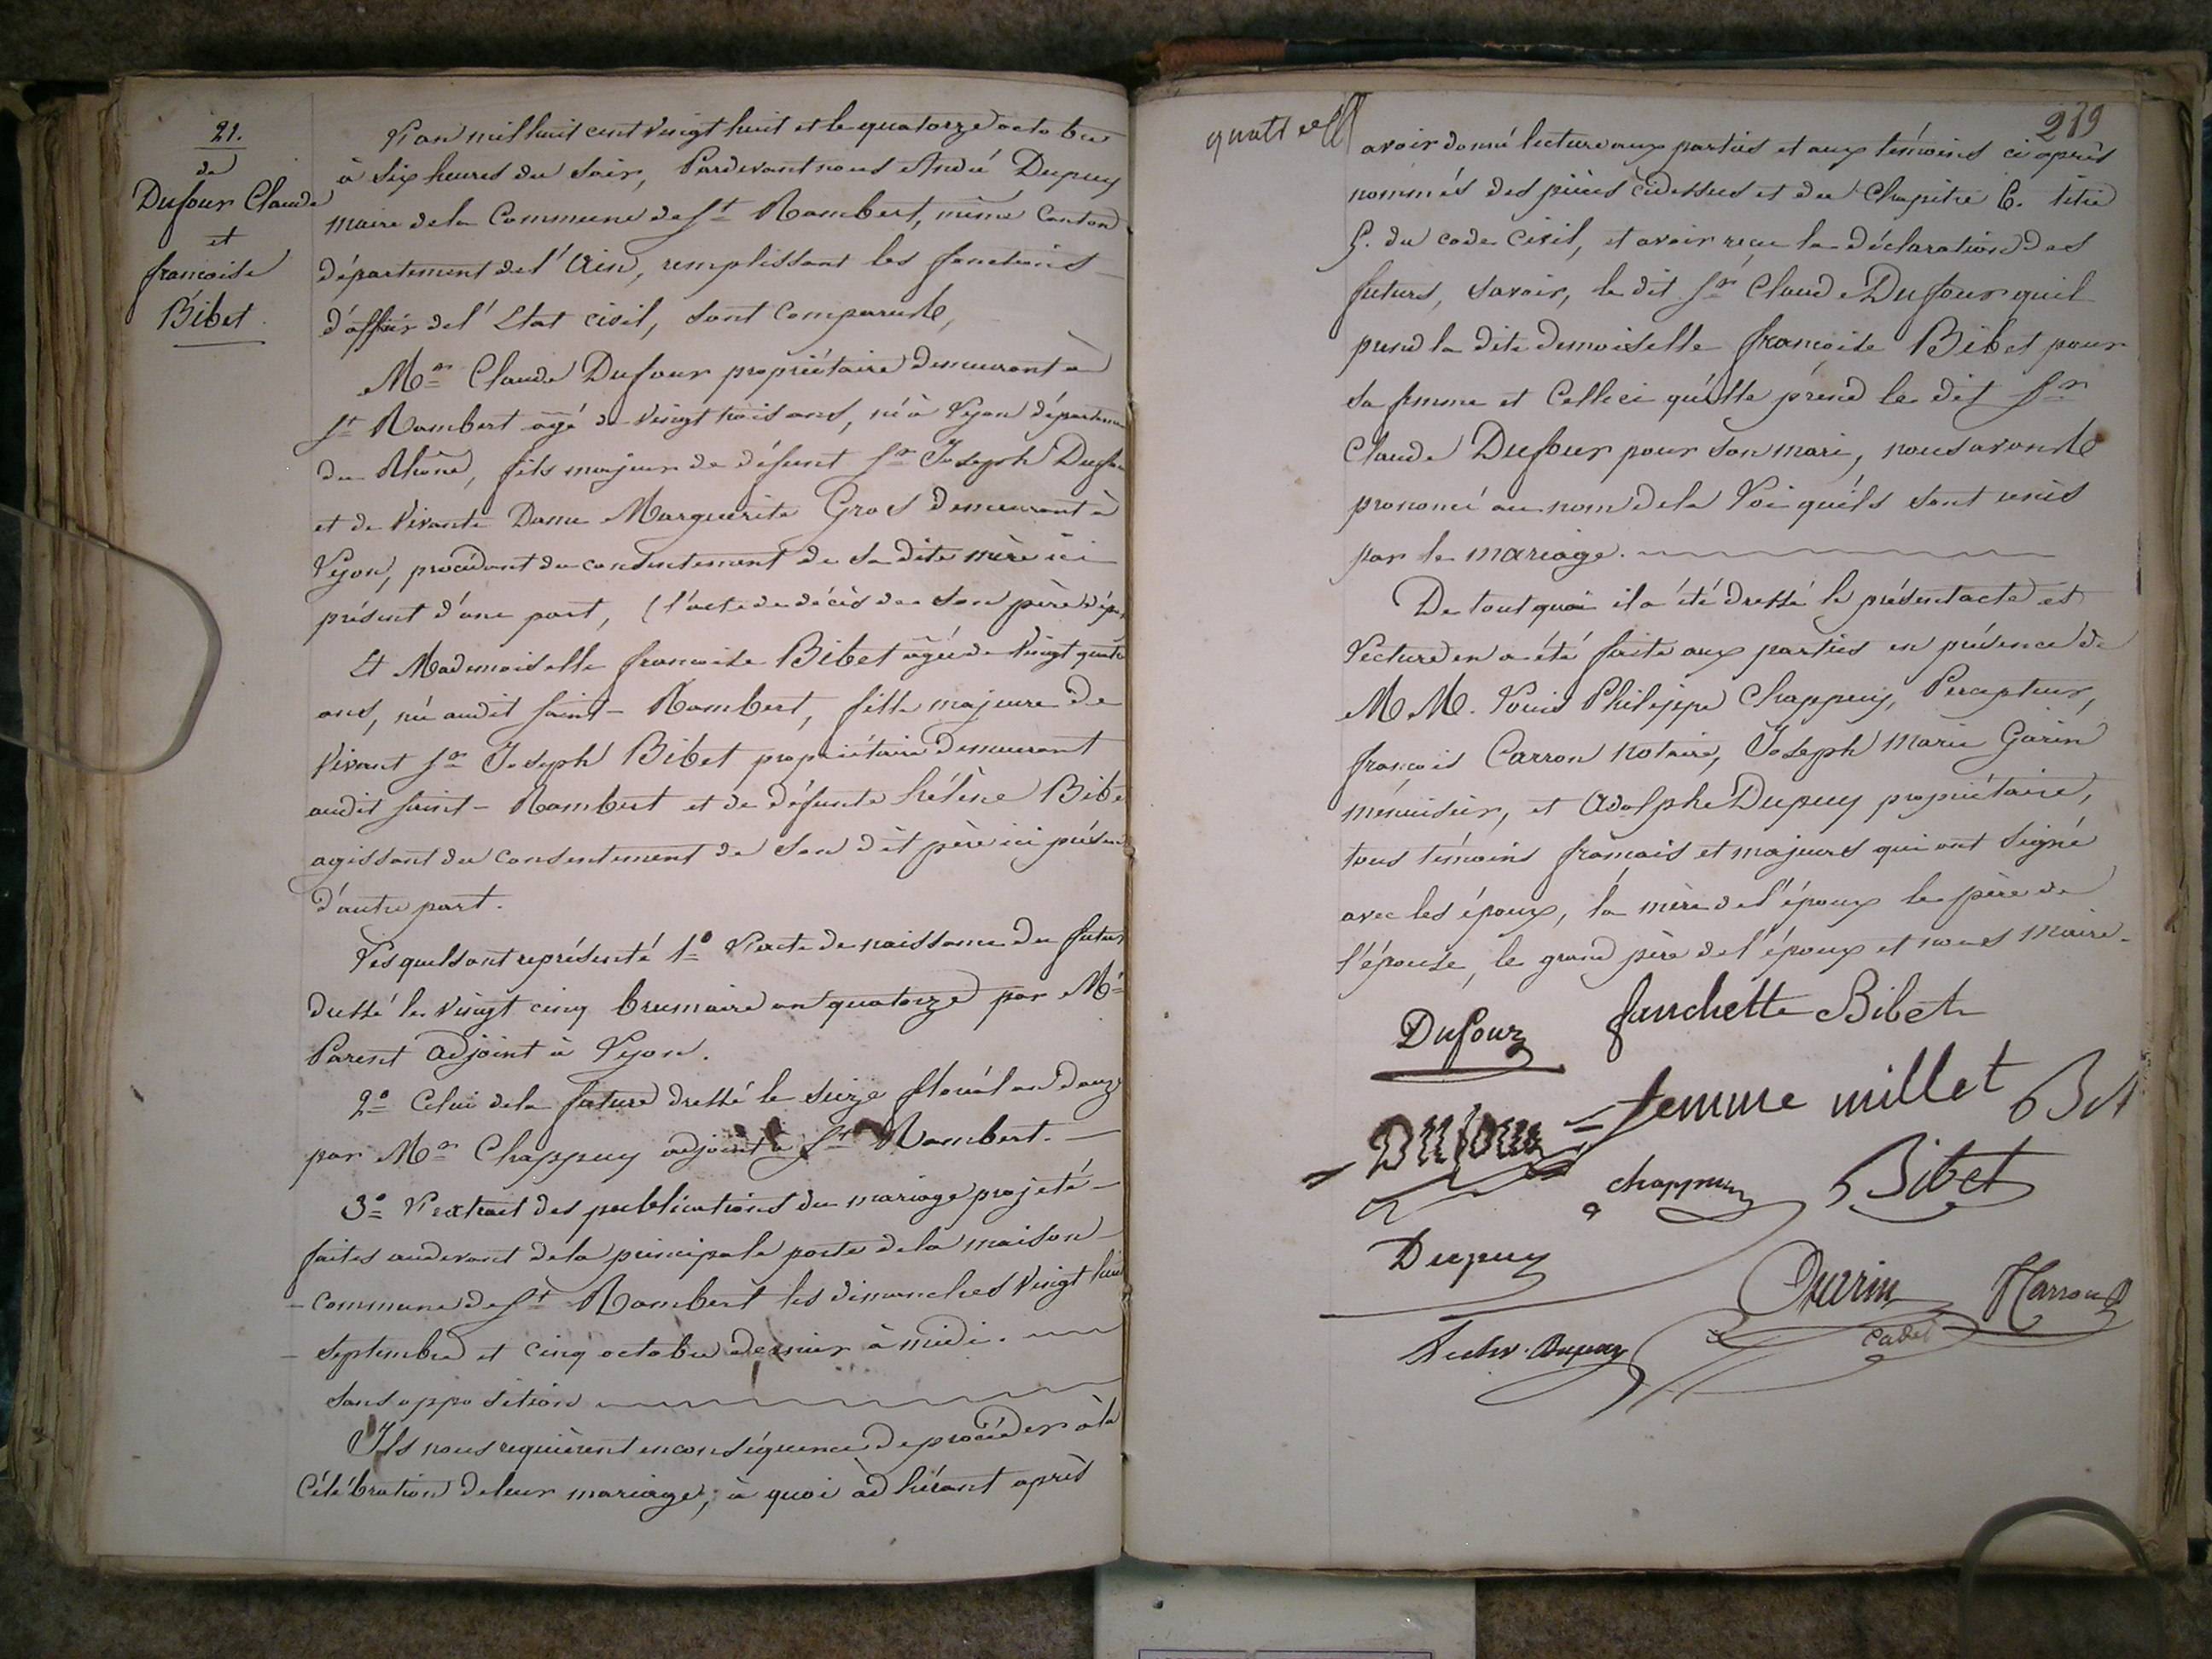 21.
de
Dufour Claude
et
francoise
Bibet.
L'an mil huit cent vingt huit et le quatorze octobre
à six heures du soir, Pardevant nous André Dupuy
maire de la Commune de St Rambert, même Canton
département de l'Ain, remplissant les fonctions
d'officier de l'Etat civil, sont comparus,
Mr Claude Dufour propriétaire demeurant à
St Rambert âgé de vingt trois ans, né à Lyon départeme
du Rhône, fils majeur de défunt Sr Joseph Dufou
et de vivante Dame Marguerite Gros demeurant à
Lyon, procédant du consentement de sa dite mère ici
présent d'une part, (l'acte de décès de son père dépo
Et Mademoiselle francoise Bibet âgée de vingt quatre
ans, née audit Saint-Rambert, fille majeure de
vivant Sr Joseph Bibet propriétaire demeurant
audit Saint-Rambert et de défunte hélène Bibe
agissant du consentement de son dit père ici présent
d'autre part.
Lesquels ont représenté 1° L'acte de naissance du futur
dressé le vingt cinq brumaire an quatorze par Mr
Parent adjoint à Lyon.
2° Celui de la future dressé le seize floréal an douze
par Mr Chappuy adjoint à St Rambert.
3° L'extrait des publications du mariage projeté
faites audevant de la principale porte de la maison
commune de St Rambert les dimanches vingt huit
septembre et cinq octobre dernier à midi.
sans opposition
Ils nous requièrent en conséquence de procéder à la
Célébration de leur mariage; à quoi adhérant après
219
avoir donné lecture aux parties et aux témoins ci après
nommés des pièces cidessus et du Chapitre 6. titre
5. du code Civil, et avoir reçu la déclaration des
futurs, savoir, le dit Sr Claude Dufour quil
prend la dite demoiselle francoise Bibet pour
sa femme et Celle ci qu'elle prend le dit Sr
Claude Dufour pour son mari, nous avons
prononcé au nom de la Loi qu'ils sont unis
par le mariage.
De tout quoi il a été dressé le présent acte et
Lecture en a été faite aux parties en présence de
M M. Louis Philippe Chappuy, Percepteur,
françois Carron notaire, Joseph Marie Garin
menuisier, et Adolphe Dupuy propriétaire,
tous témoins français et majeurs qui ont signé
avec les époux, la mère de l'époux le père de
l'épouse, le grand père de l'époux et nous Maire.
Dufour fanchette Bibet
Dufour femme millet
chappuy Bibet
Dupuy
Garin Carron
cadet
Dupuy